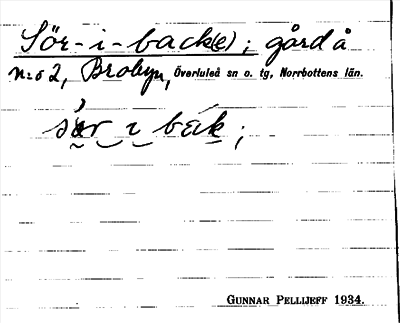 Sör-i-back(e); gård å
n:o 2, Brobyn, Överluleå sn o. tg, Norrbottens län.
sær ı bak;
GUNNAR PELLIJEFF 1934.